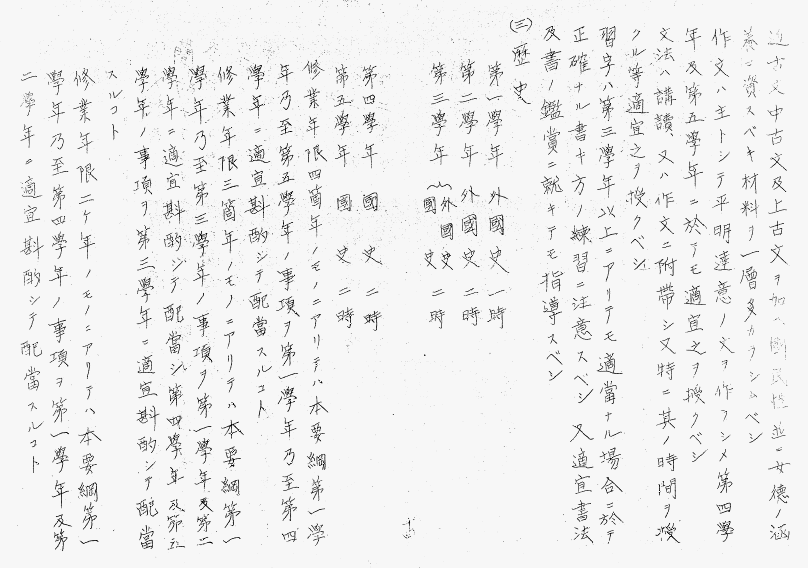 近古文中古文及上古文ヲ加ヘ國民性並ニ女德ノ涵
養ニ資スベキ材料ヲ一層多カラシムベシ
作文ハ主トシテ平明達意ノ文ヲ作ラシメ第四學
年及第五學年ニ於テモ適宜之ヲ授クベシ
文法ハ講讀、又ハ作文ニ附帶シ又特ニ其ノ時間ヲ授
クル等適宜之ヲ授クベシ
習字ハ第三學年以上ニアリテモ適當ナル場合ニ於テ
正確ナル書キ方ノ練習ニ注意スベシ 又適宜書法
及書ノ鑑賞ニ就キテモ指導スベシ
(三)歷史
第一學年 外國史一時
第二學年 外國史二時
第三學年 外國史 國史 二時
第四學年 國史二時
第五學年 國史二時
修業年限四箇年ノモノニアリテハ本要綱第一學
年乃至第五學年ノ事項ヲ第一學年乃至第四
學年ニ適宜斟酌シテ配當スルコト
修業年限三箇年ノモノニアリテハ本要綱第一
學年乃至第三學年ノ事項ヲ第一學年及第二
學年ニ適宜斟酌シテ配當シ第四學年及第五
學年ノ事項ヲ第三學年ニ適宜斟酌シテ配當
スルコト
修業年限二ケ年ノモノニアリテハ本要綱第一
學年乃至第四學年ノ事項ヲ第一學年及第
二學年ニ適宜斟酌シテ配當スルコト